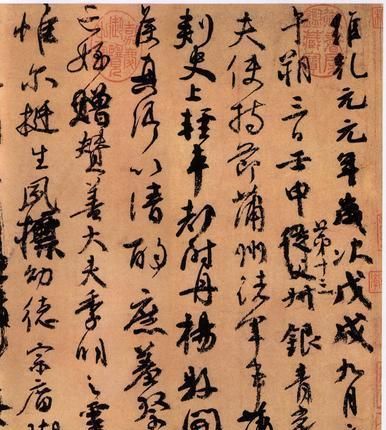 維乾元元年歲次戊戌九月
午朔三日壬申第十三從父銀青光
夫使持節蒲州諸軍事蒲
刺史上輕車都尉丹楊縣開
侯真卿以清酌庶羞祭
亡姪贈贊善大夫季明之靈
惟爾挺生夙標幼德宗廟瑚